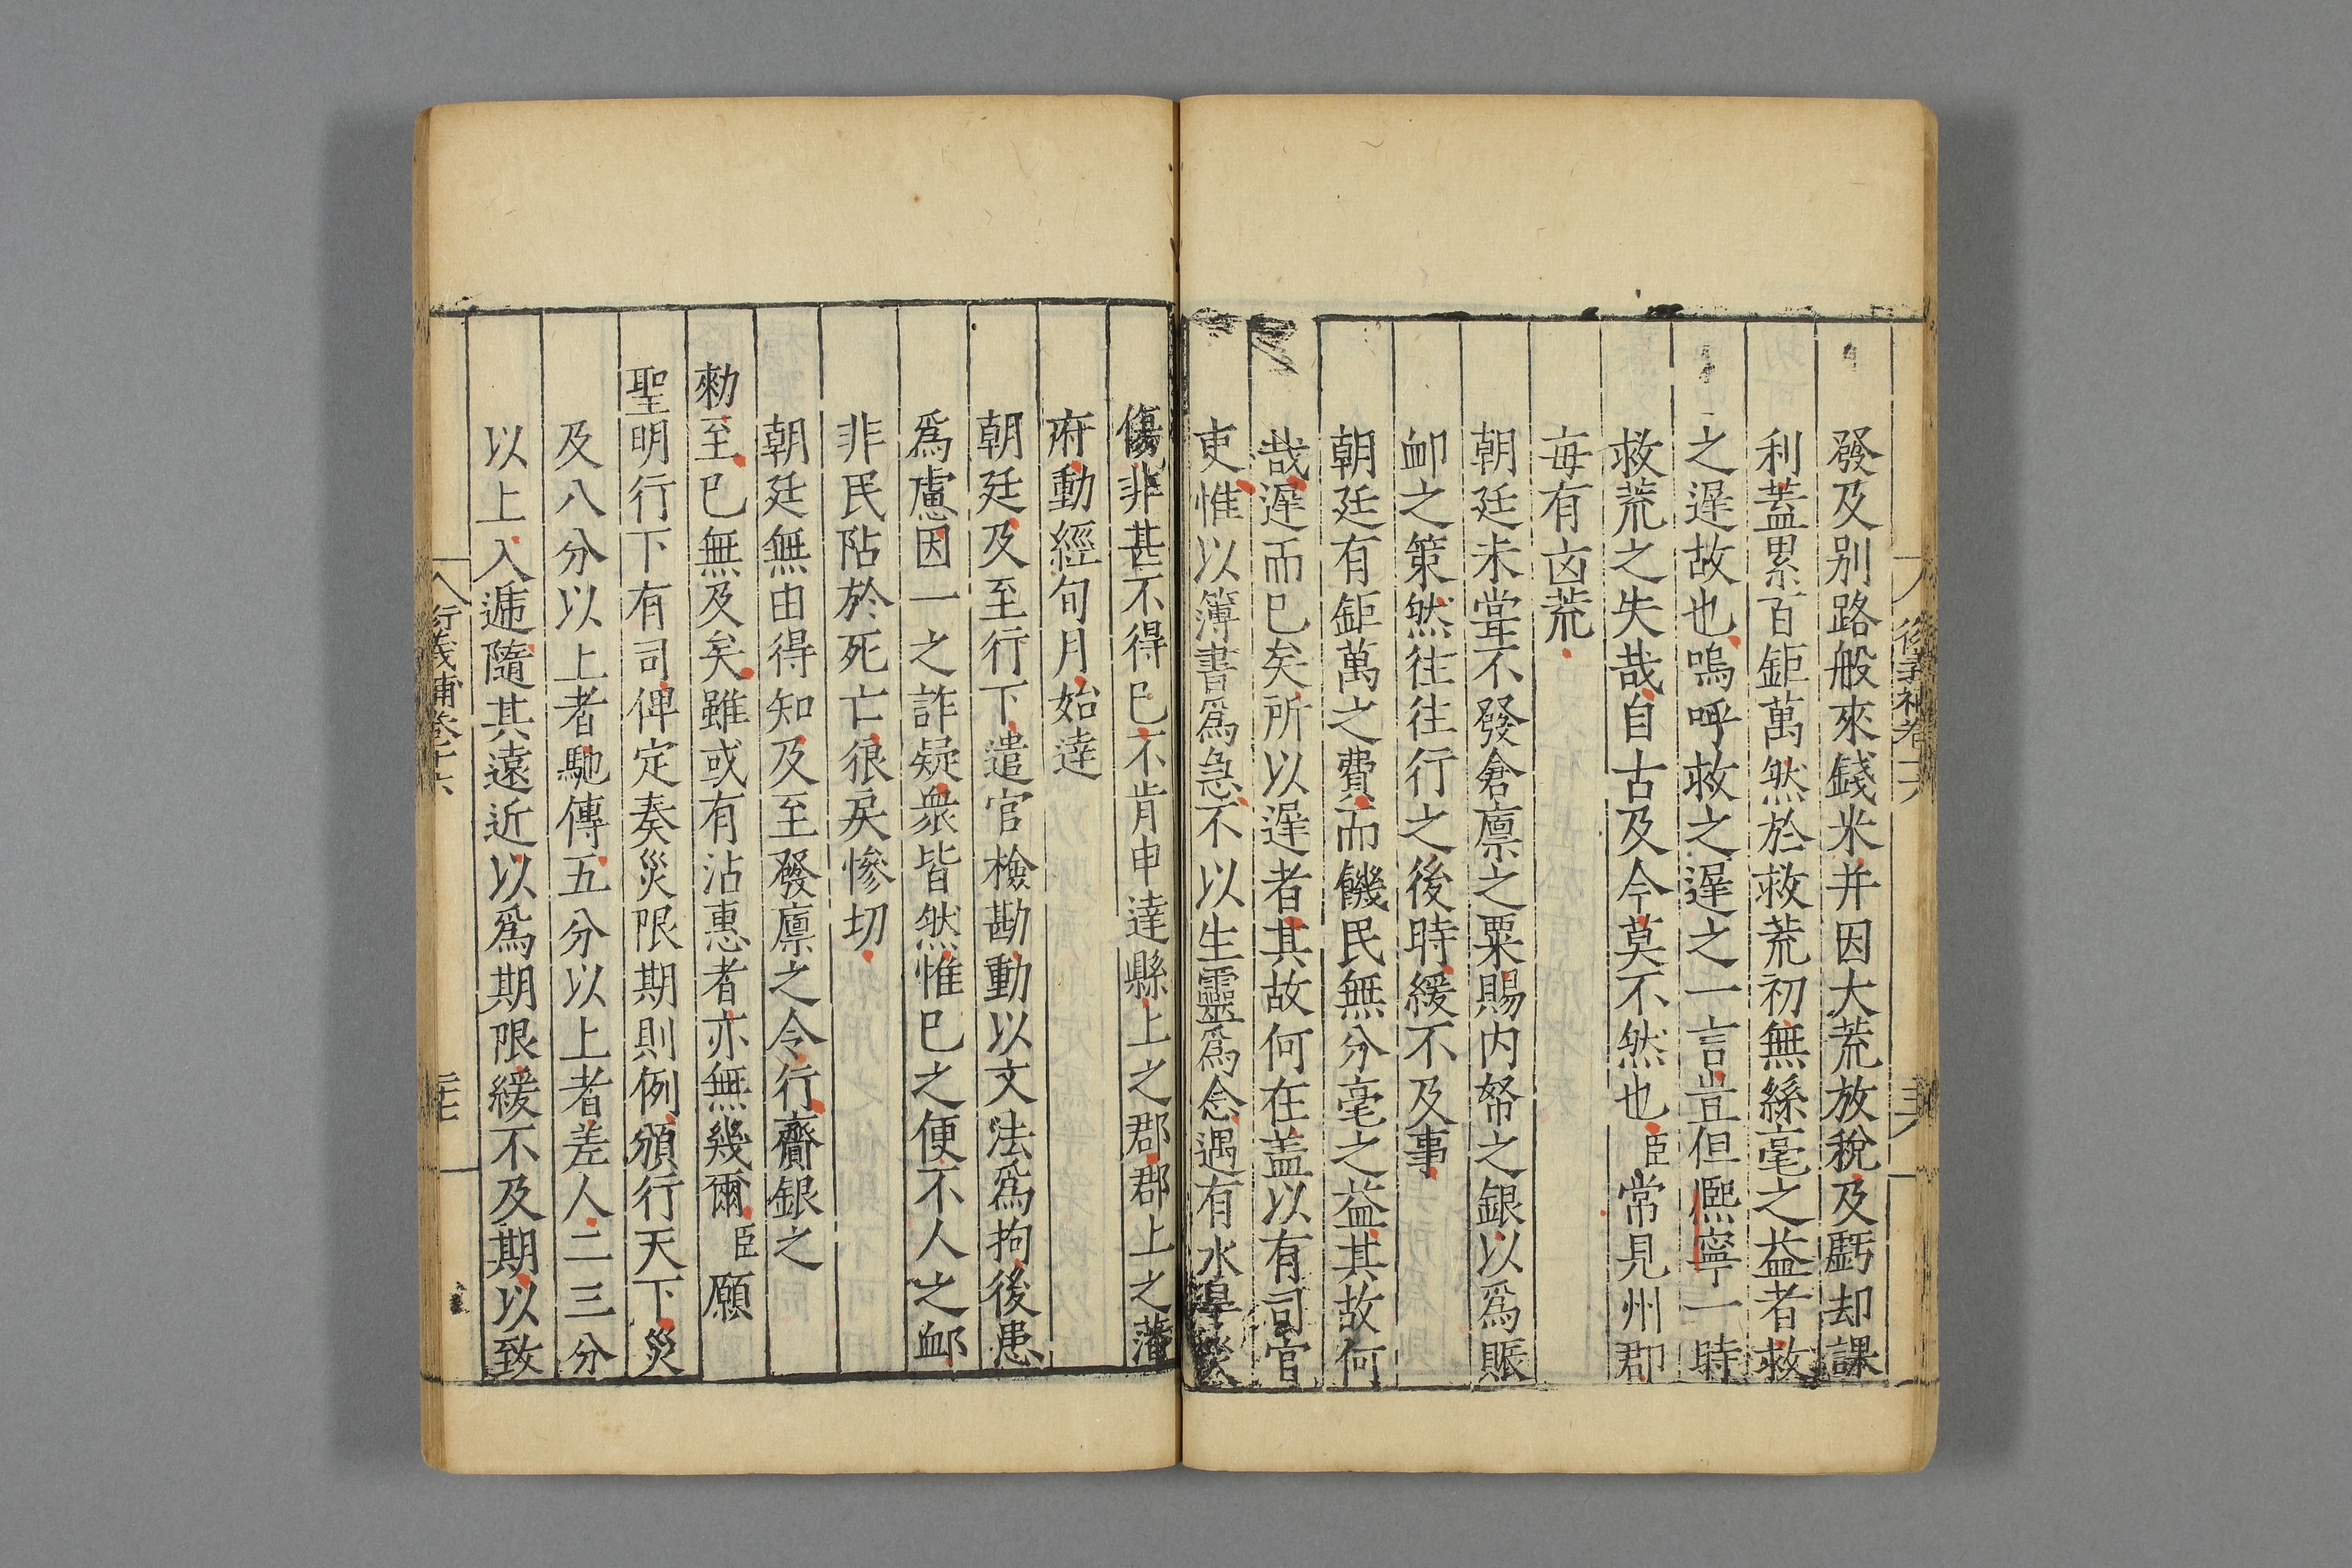 發及别路般來錢米并因大荒放稅及虧却課
利蓋累百鉅萬然於救荒初無絲毫之益者救
之遲故也嗚呼救之遲之一言豈但熈寧一時
救荒之失哉自古及今莫不然也臣常見州郡
毎有凶荒
朝廷未甞不發倉廪之粟賜内帑之銀以爲賑
䘏之策然往往行之後時緩不及事
朝廷有鉅萬之費而饑民無分毫之益其故何
哉遲而已矣所以遲者其故何在盖以有司官
吏惟以簿書爲急不以生靈爲念遇有水旱災
傷非甚不得已不肯申達縣上之郡郡上之藩
府動經旬月始達
朝廷及至行下遣官檢勘動以文法爲拘後患
爲慮因一之詐疑衆皆然惟已之便不人之䘏
非民阽於死亡狠戾慘切
朝廷無由得知及至發廪之令行齎銀之
勑至已無及矣雖或有沾惠者亦無幾爾臣願
聖明行下有司俾定奏災限期則例頒行天下災
及八分以上者馳傳五分以上者差人二三分
以上入遞隨其遠近以爲期限緩不及期以致
衍義補卷十六